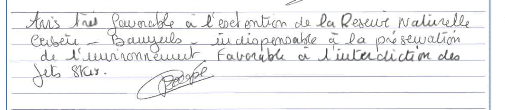 Avis très favorable à l'extention de la Reserve Naturelle
Cerbère - Banyuls - indispensable à la préservation
de l'environnement Favorable à l'interdiction des
Jets Skis.